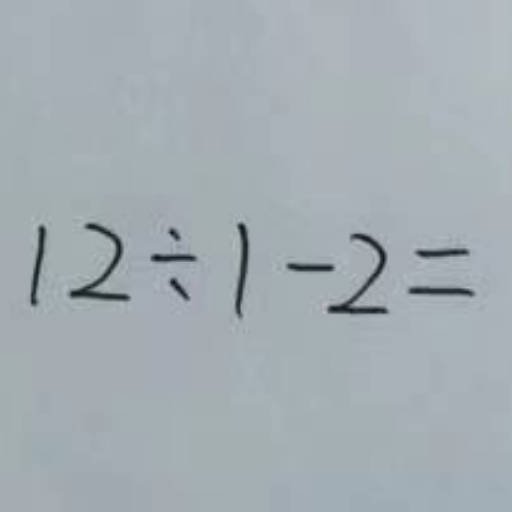 12÷1-2=